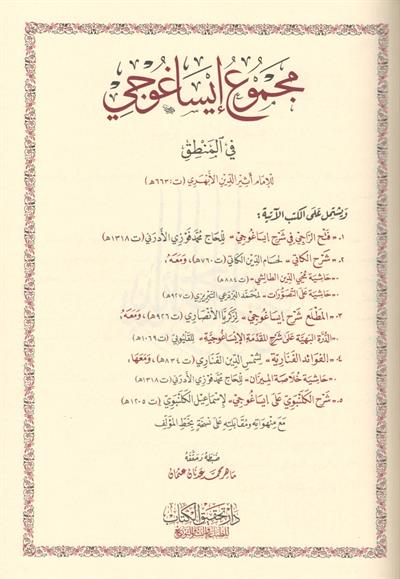 مَجْمُوعُ إِيسَاغُوجِي
فِي المَنْطِقِ
لِلإِمَامِ أَثِيرِ الدِّينِ الأَبْهَرِي (ت:٦٦٣هـ)
وَيَشْتَمِلُ عَلَى الكُتُبِ الآتِيَةِ:
١ـ «فَتْحُ الرَّاجِي فِي شَرْحِ إِيسَاغُوجِي» لِلْحَاجِ مُحَمَّد فَوْزِي الأَدِرْنِي (ت١٣١٨هـ)
٢ـ «شَرْحُ الكَاتِي» لِحُسَامِ الدِّينِ الكَاتِي (ت٧٦٠هـ)، وَمَعَهُ:
ـ حَاشِيَةُ مُحْيِي الدِّينِ الطَّالِشِي (ت٨٨٤هـ)
ـ حَاشِيَةٌ عَلَى التَّصَوُّرَاتِ لِمُحَمَّد البَرْدَعِي التَّبْرِيزِي (ت٩٢٧هـ)
٣ـ «المَطْلَعُ شَرْحُ إِيسَاغُوجِي» لِزَكَرِيَّا الأَنْصَارِي (ت٩٢٦هـ) وَمَعَهُ:
ـ الدُّرَّةُ البَهِيَّةُ عَلَى شَرْحِ المُقَدِّمَةِ الإِيسَاغُوجِيَّةِ» لِلْقَلْيُوبِي (ت١٠٦٩هـ)
٤ـ «الفَوَائِدُ الفَنَارِيَّةُ» لِشَمْسِ الدِّينِ الفَنَارِي (ت٨٣٤هـ)، وَمَعَهَا:
ـ حَاشِيَةُ خُلَاصَةِ المِيزَانِ» لِلْحَاجِ مُحَمَّد فَوْزِي الأَدِرْنِي (ت١٣١٨هـ)
٥ـ «شَرْحُ الكَلَنْبَوِيِّ عَلَى إِيسَاغُوجِي» لِإِسْمَاعِيلَ الكَلَنْبَوِيِّ (ت١٢٠٥هـ)
مَعَ مِنْهَوَاتِهِ وَمُقَابَلَتِهِ عَلَى نُسْخَةٍ بِخَطِّ المُؤَلِّفِ
ضَبَطَهُ وَحَقَّقَهُ
مَاهِر مُحَمَّد عَدْنَان عُثْمَان
دَارُ تَحْقِيقِ الكِتَابِ
لِلطِّبَاعَةِ وَالنَّشْرِ وَالتَّوْزِيعِ